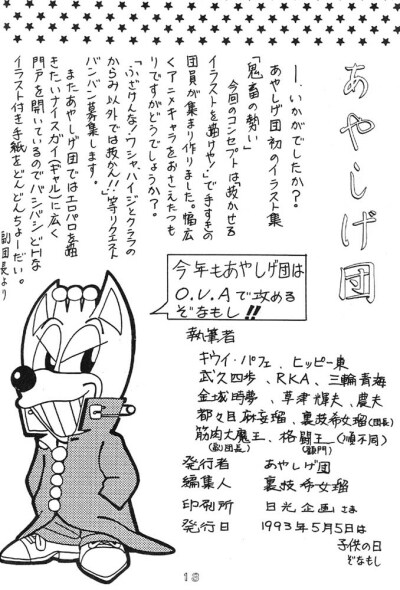 あやしげ団
一、いかがでしたか?
あやしげ団初のイラスト集
「鬼畜の勢い」
今回のコンセプトは「抜かせる
イラストを描けや!」で手すきの
団員が集まり作りました。幅広
くアニメキャラをおさえたつも
りですがどうでしょうか?
「ふざけんな!ワシャ、ハイジとクララの
からみ以外では抜かん!!」等リクエスト
バンバン募集します。
またあやしげ団ではエロパロを描
きたいナイスガイ(ギャル)に広く
門戸を開いているのでバンバンどHな
イラスト付き手紙をどんどんちょーだい。
副団長より
今年もあやしげ団は
O.V.Aで攻める
ぞなもし!!
執筆者
キウイ・パフェ、ヒッピー東
武久四歩、RKA、三輪青海
金城時夢、草津輝夫、農夫
都々目麻妄瑠、裏技希女瑠(団長)
筋肉大魔王、格闘王(順不同)
(副団長) (顧門)
発行者 あやしげ団
編集人 裏技希女瑠
印刷所 日光企画さま
発行日 1993年5月5日は
子供の日
ぞなもし
18